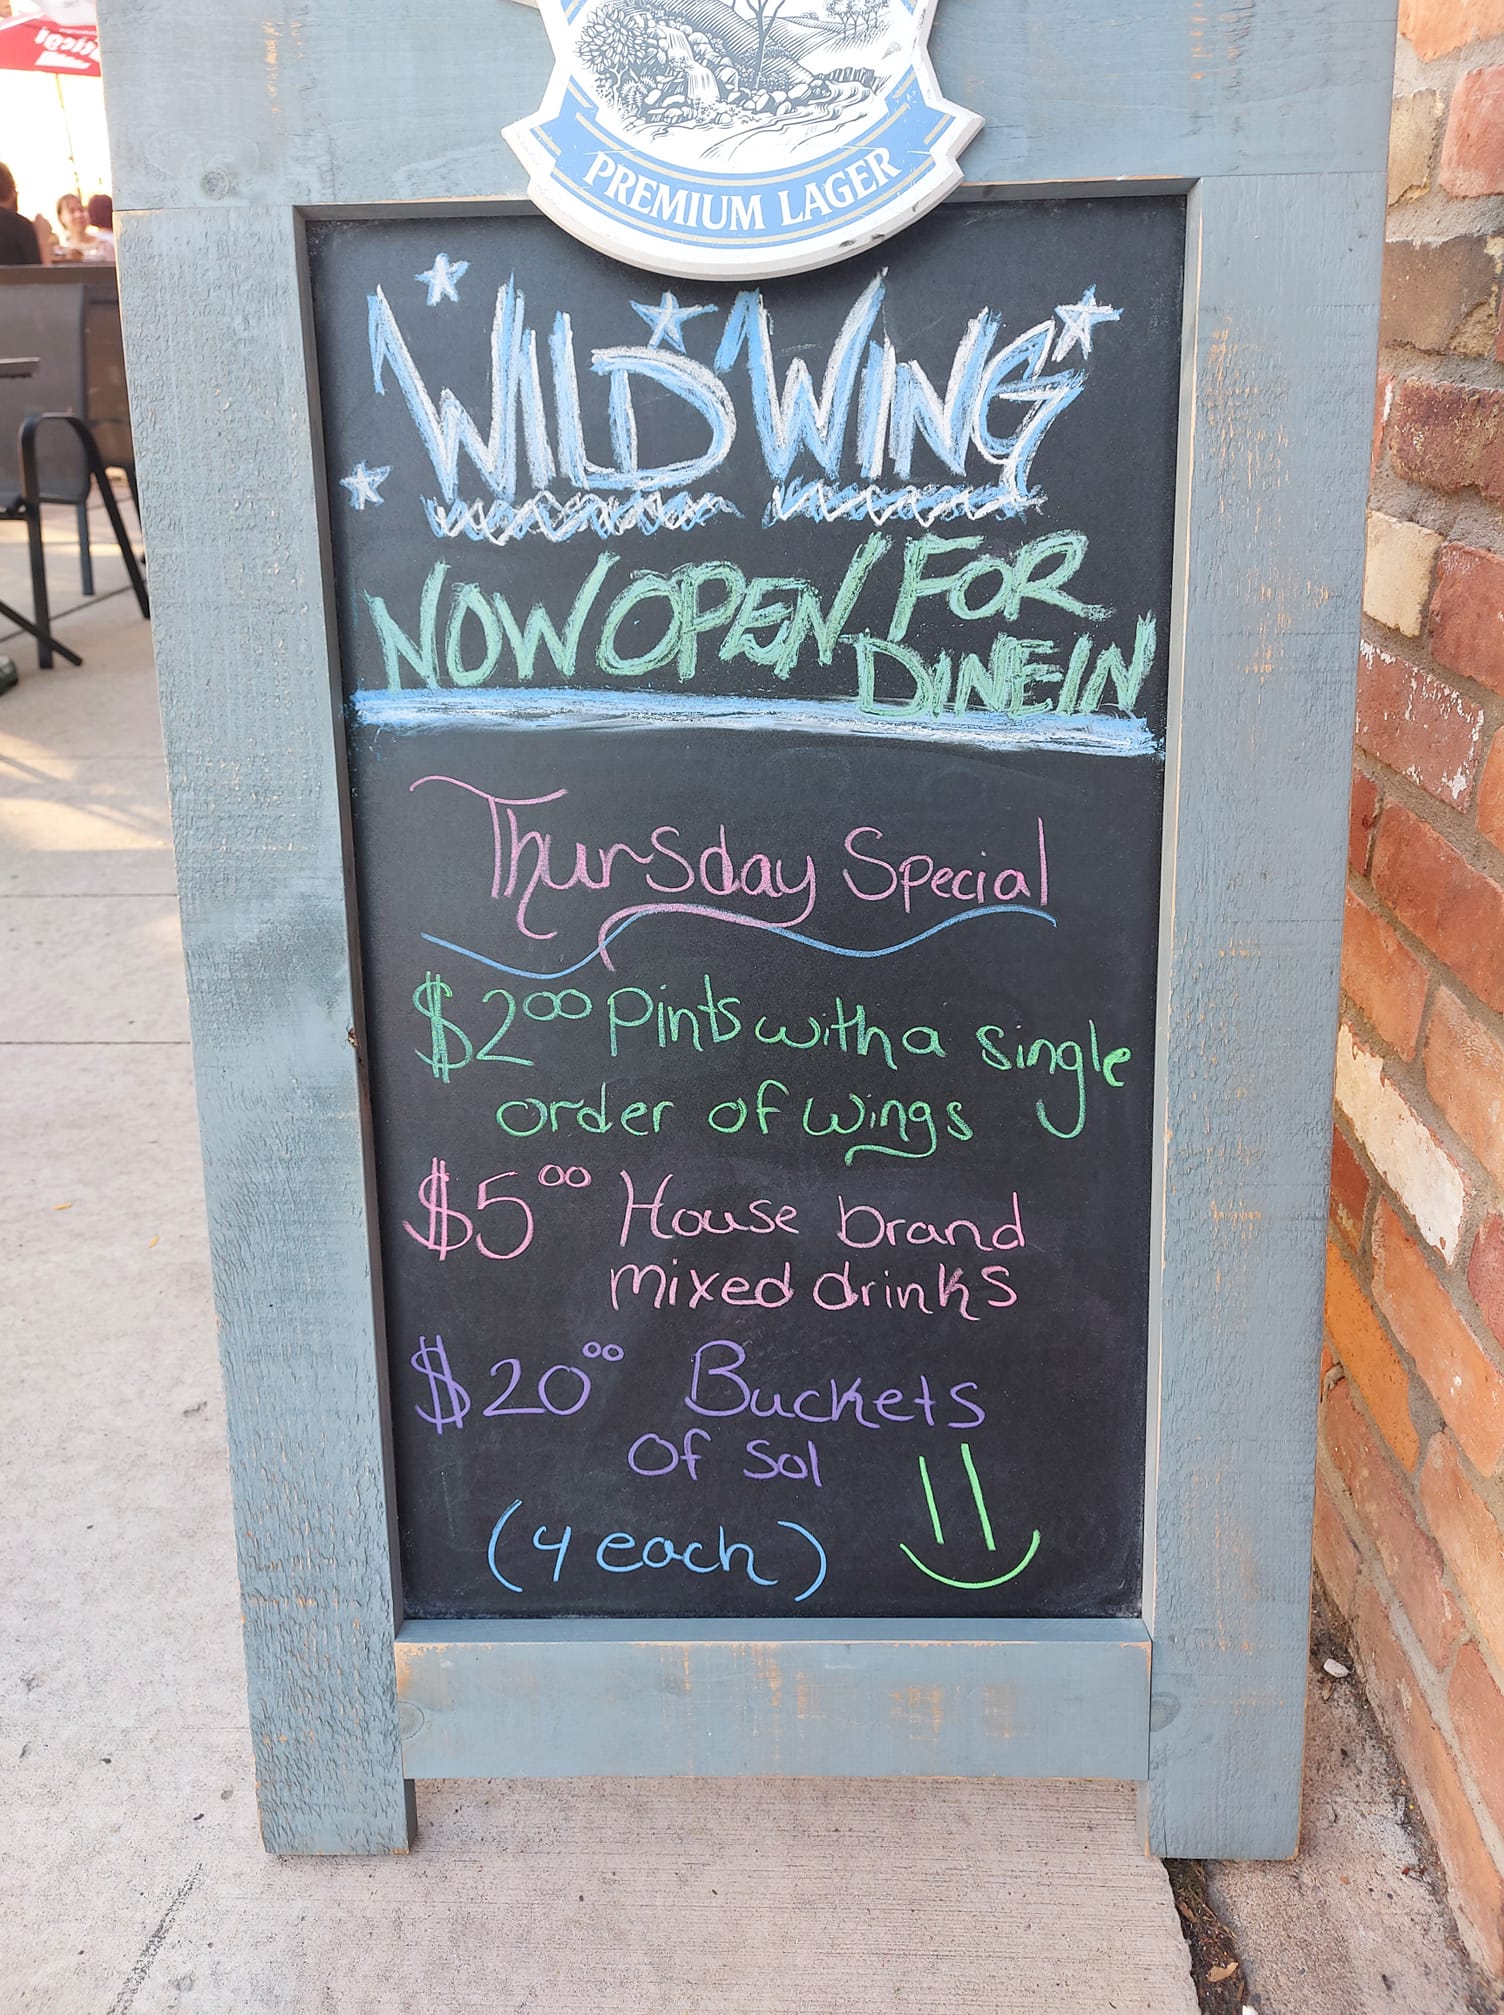 PREMIUM LAGER
WILD WING
NOW OPEN FOR
DINE IN
Thursday Special
$2⁰⁰ Pints with a single
order of wings
$5⁰⁰ House brand
mixed drinks
$20⁰⁰ Buckets
of Sol
(4 each)